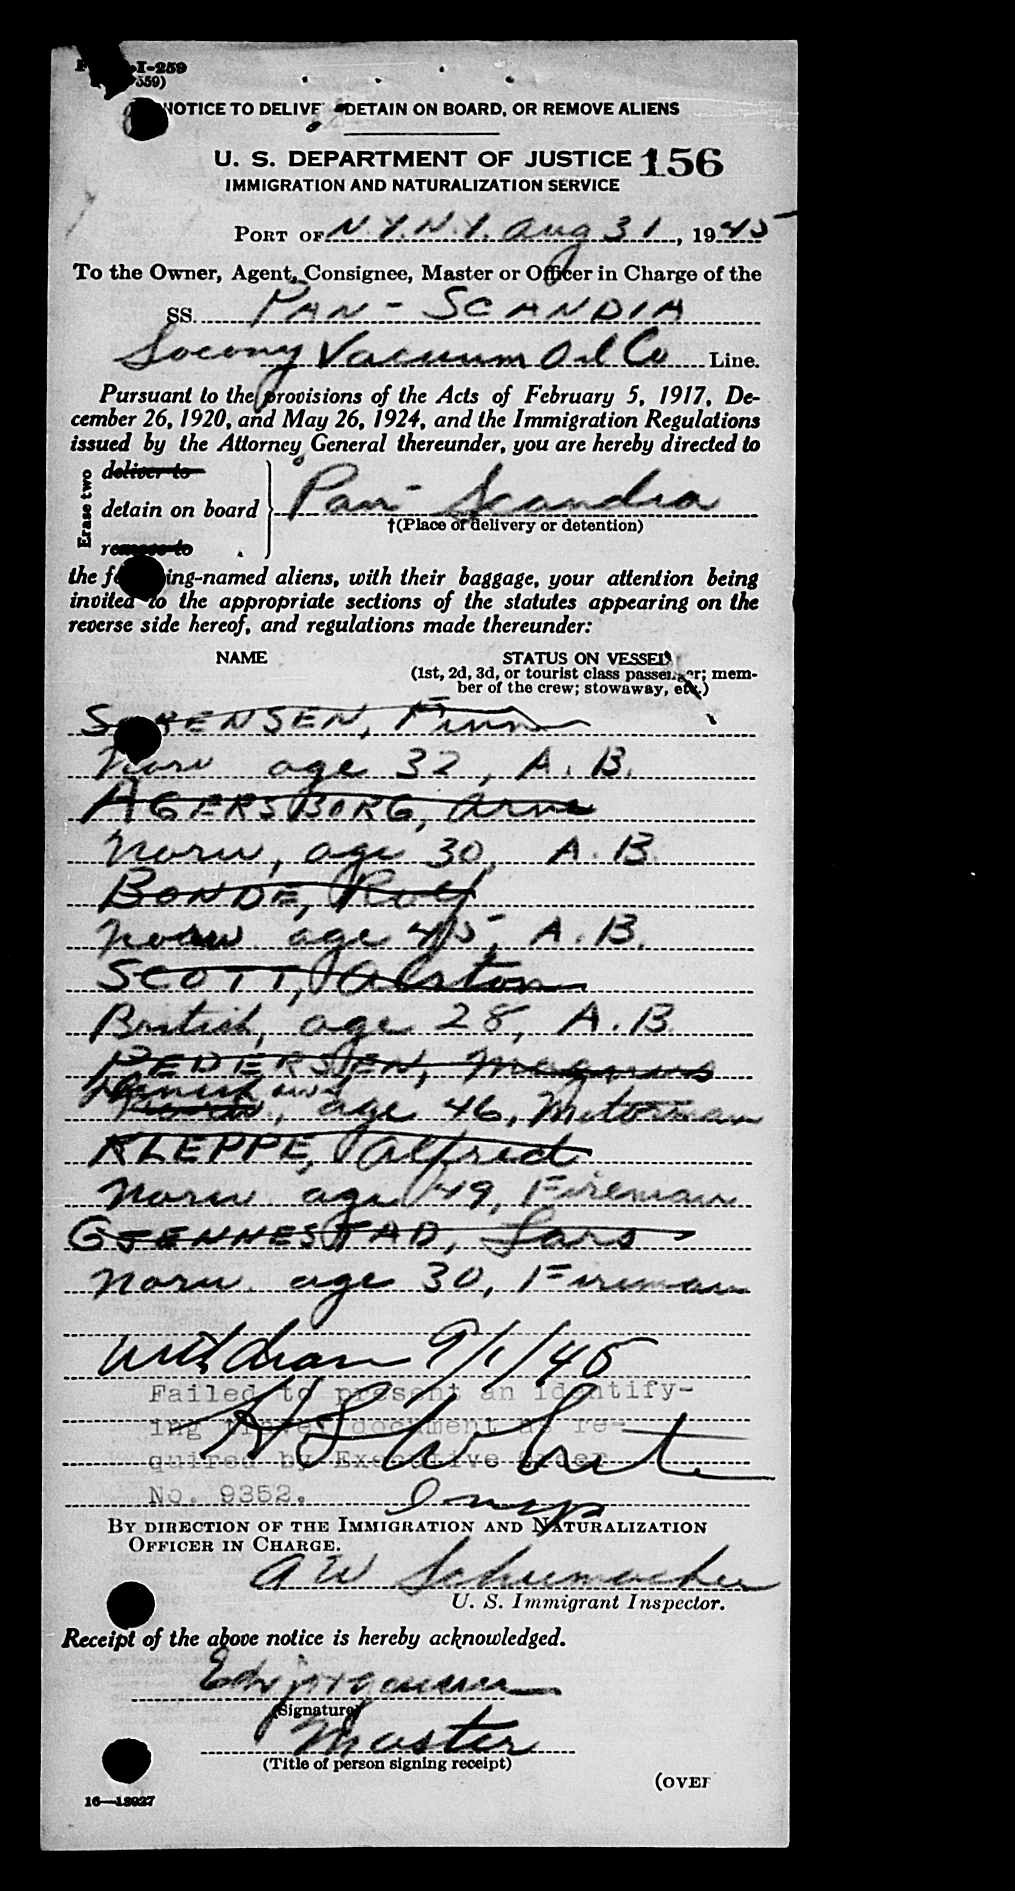 I-259
NOTICE TO DELIVE DETAIN ON BOARD, OR REMOVE ALIENS
U. S. DEPARTMENT OF JUSTICE 156
IMMIGRATION AND NATURALIZATION SERVICE
PORT OF N.Y.N.Y. Aug 31, 1945
To the Owner, Agent, Consignee, Master or Officer in Charge of the
SS. PAN-SCANDIA
Socony Vacuum Oil Co Line.
Pursuant to the provisions of the Acts of February 5, 1917, De-
cember 26, 1920, and May 26, 1924, and the Immigration Regulations
issued by the Attorney General thereunder, you are hereby directed to
Erase two
deliver to
detain on board
remove to
Pan-Scandia
†(Place of delivery or detention)
the following-named aliens, with their baggage, your attention being
invited to the appropriate sections of the statutes appearing on the
reverse side hereof, and regulations made thereunder:
NAME STATUS ON VESSEL
(1st, 2d, 3d, or tourist class passenger; mem-
ber of the crew; stowaway, etc.)
SORENSEN, Finn
Norw age 32, A.B.
AGERSBORG, Arne
Norw, age 30, A.B.
BONDE, Rolf
Norw. age 45, A.B.
SCOTT, Alston
British, age 28, A.B.
PEDERSEN, Magnus
Danish, age 46, Motorman
KLEPPE, Alfred
Norw. age 49, Fireman
GJENNESTAD, Lars
Norw. age 30, Fireman
Withdrawn 9/1/45
Failed to present an identify-
ing travel document as re-
quired by Executive Order
No. 9352.
Insp
BY DIRECTION OF THE IMMIGRATION AND NATURALIZATION
OFFICER IN CHARGE.
AW Schumacher
U. S. Immigrant Inspector.
Receipt of the above notice is hereby acknowledged.
(Signature)
Master
(Title of person signing receipt)
(OVER
16—18927